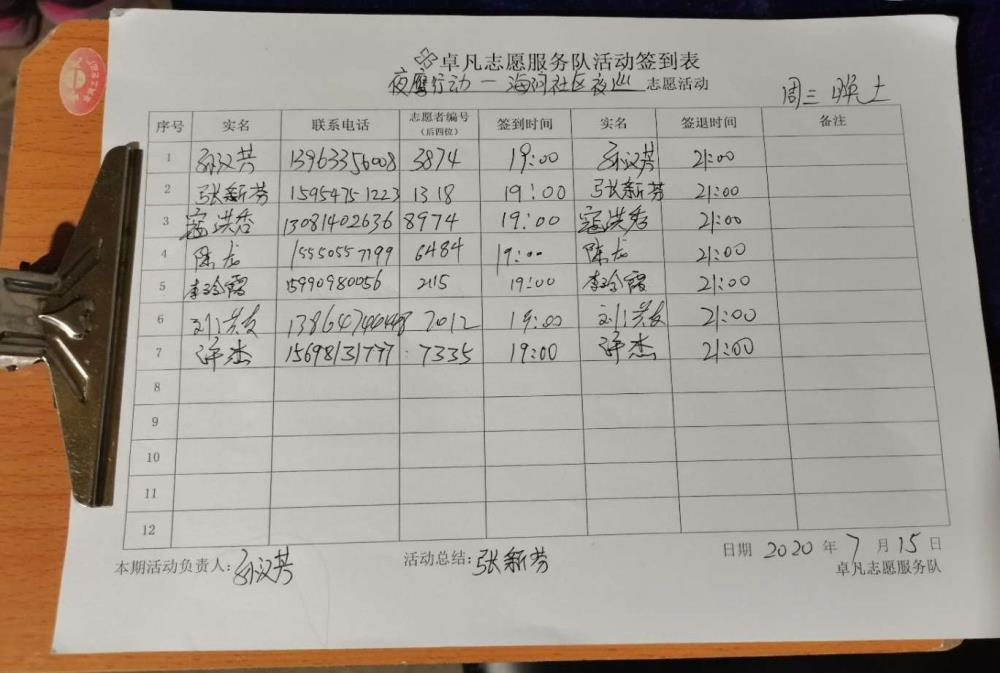 卓凡志愿服务队活动签到表
夜鹰行动一海河社区夜巡 志愿活动
周三 晚上
序号 实名 联系电话 志愿者编号（后四位） 签到时间 实名 签退时间 备注
1 孙汉芳 13963356008 3874 19:00 孙汉芳 21:00
2 张新芳 15954751223 1318 19:00 张新芳 21:00
3 寇洪秀 13081402636 8974 19:00 寇洪秀 21:00
4 陈龙 15550557799 6484 19:00 陈龙 21:00
5 李玲霞 15990980056 2115 19:00 李玲霞 21:00
6 7012 19:00 21:00
7 许杰 15698131777 7335 19:00 许杰 21:00
8
9
10
11
12
本期活动负责人: 孙汉芳 活动总结: 张新芳 日期 2020 年 7 月 15 日
卓凡志愿服务队